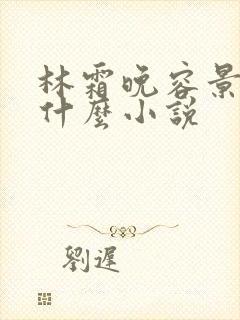 林霜晚容景
什麼小說
劉遲